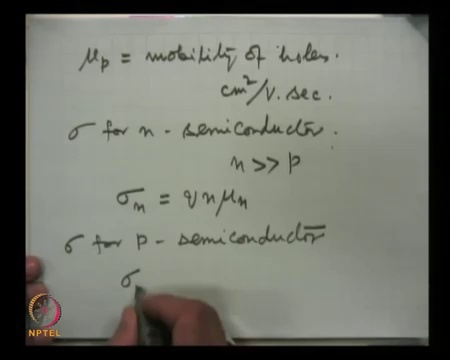 μp = mobility of holes.
cm²/V.sec.
σ for n - semiconductor.
n >> p
σn = qnμn
σ for p - semiconductor
σ
NPTEL